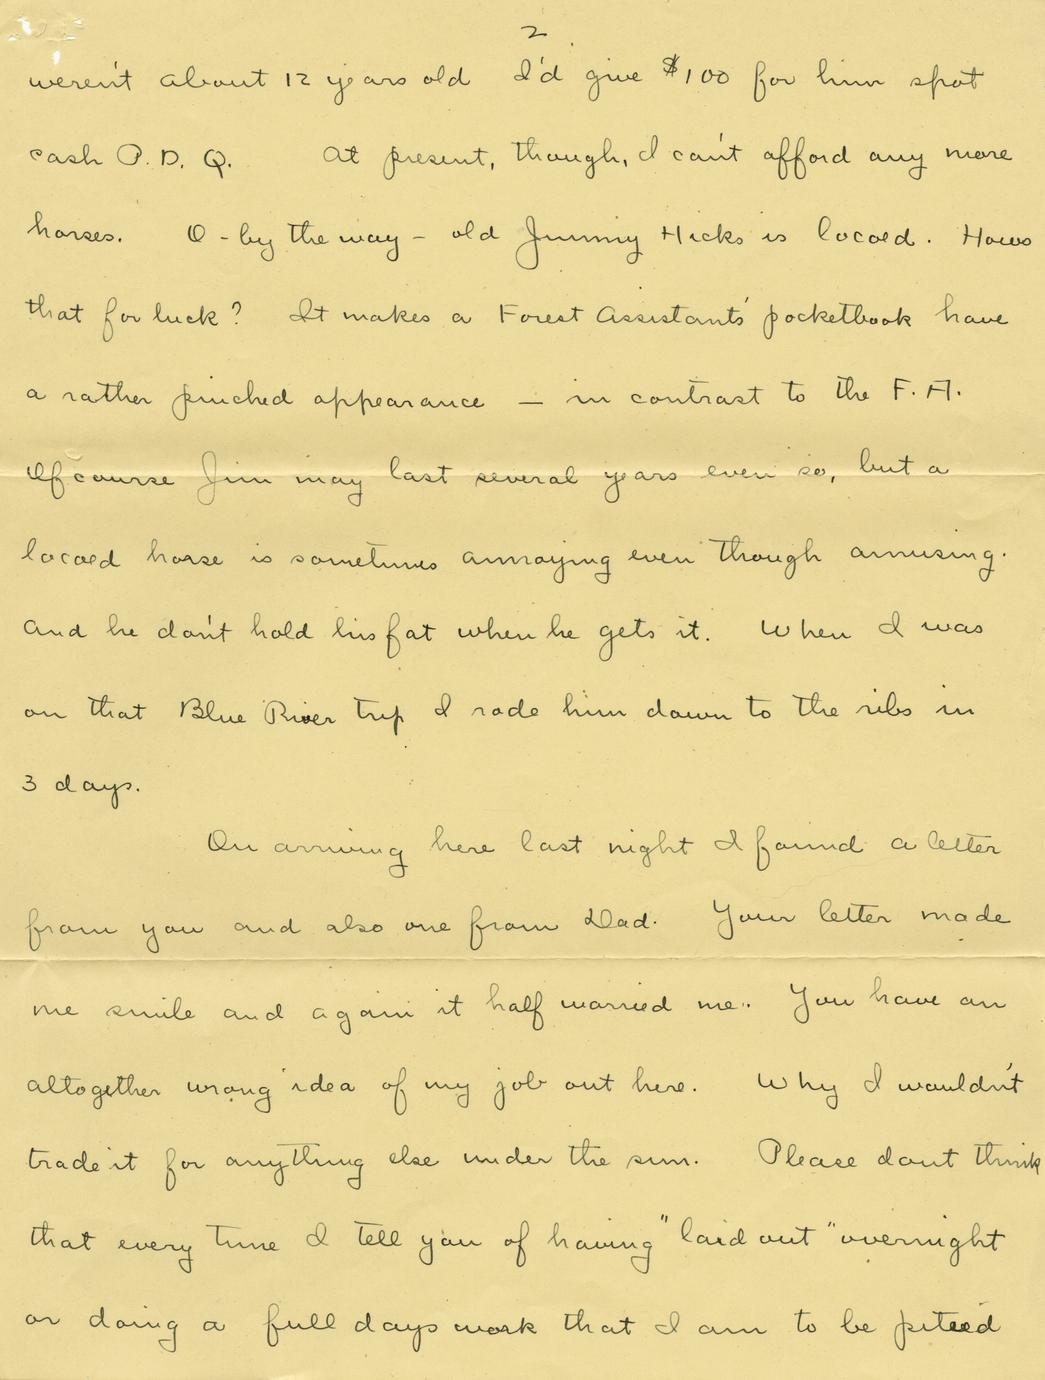 2
weren't about 12 years old I'd give $100 for him spot
cash P.D.Q. At present, though, I can't afford any more
horses. O - by the way - old Jimmy Hicks is locoed. Hows
that for luck? It makes a Forest Assistants' pocketbook have
a rather pinched appearance — in contrast to the F.A.
Of course Jim may last several years even so, but a
locoed horse is sometimes annoying even though amusing.
And he don't hold his fat when he gets it. When I was
on that Blue River trip I rode him down to the ribs in
3 days.
On arriving here last night I found a letter
from you and also one from Dad. Your letter made
me smile and again it half worried me. You have an
altogether wrong idea of my job out here. Why I wouldn't
trade it for anything else under the sun. Please dont think
that every time I tell you of having "laid out" overnight
or doing a full days work that I am to be pitied